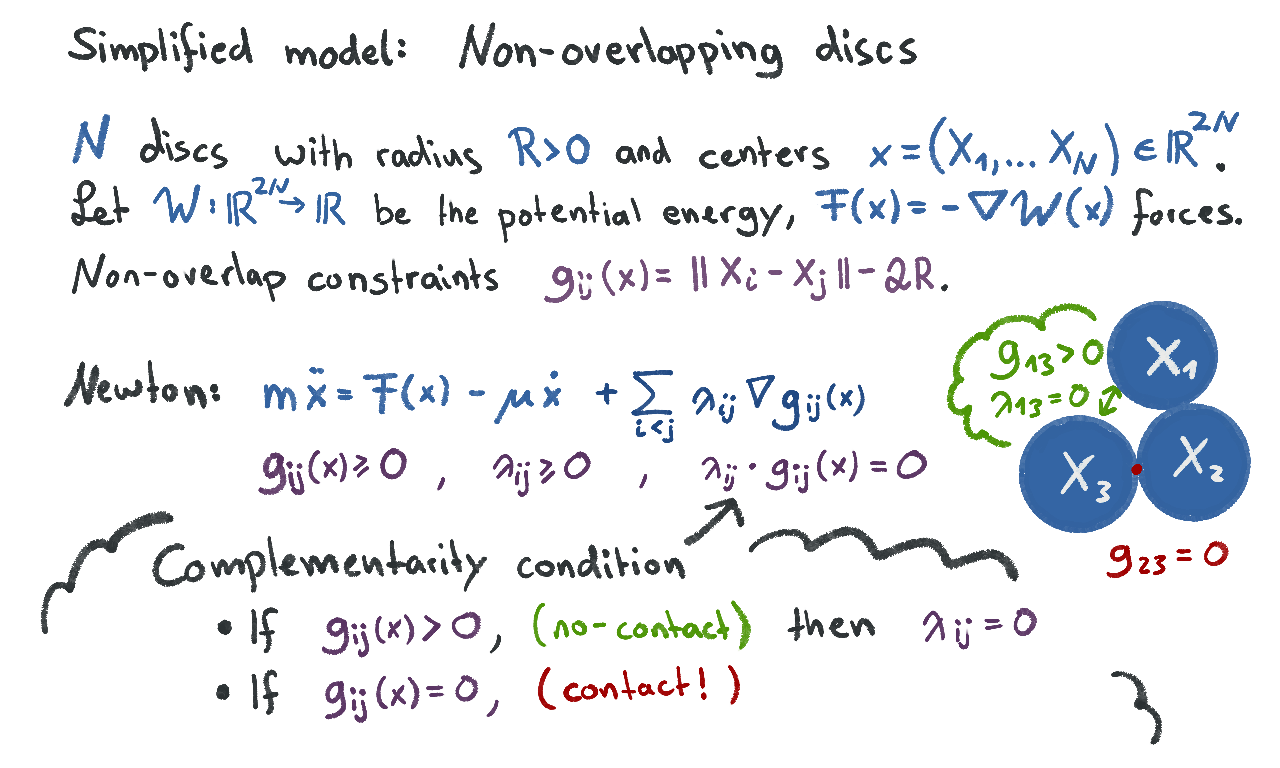 Simplified model: Non-overlapping discs
N discs with radius R>0 and centers x=(X₁,... X_N) ∈ ℝ²ᴺ.
Let W: ℝ²ᴺ→ℝ be the potential energy, F(x)=-∇W(x) forces.
Non-overlap constraints g_ij(x)= ||X_i - X_j||-2R.
Newton: mẍ = F(x) - μẋ + ∑_{i<j} λ_ij ∇g_ij(x)
g_ij(x)≥0 , λ_ij≥0 , λ_ij · g_ij(x) = 0
g₁₃>0
λ₁₃=0
X₁
X₃
X₂
g₂₃=0
Complementarity condition
• If g_ij(x)>0, (no-contact) then λ_ij=0
• If g_ij(x)=0, (contact!)